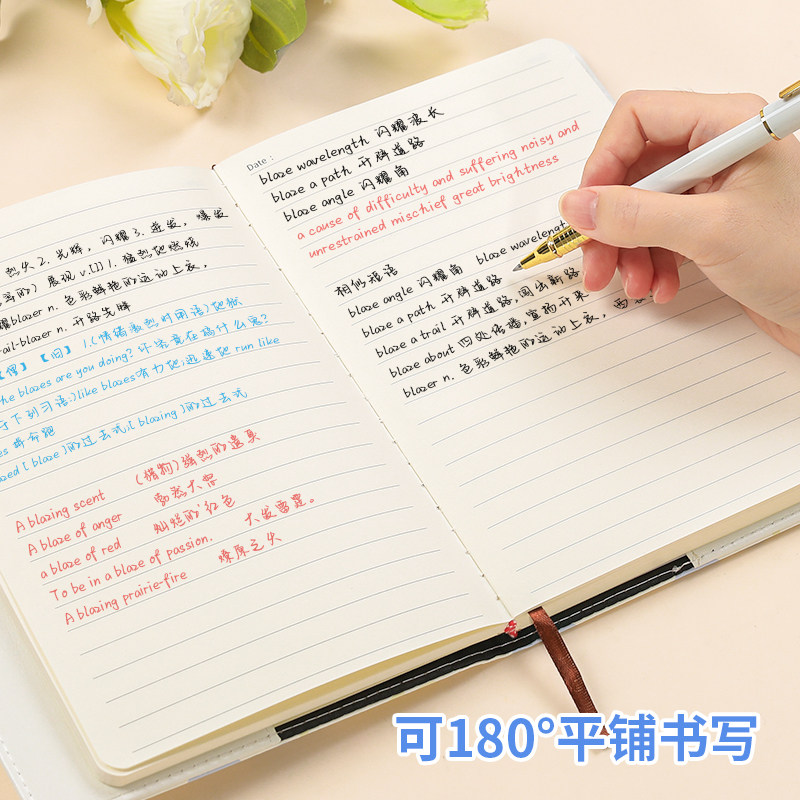 烈火2.光辉，闪耀3.迸发，爆发
写的）展现v.[I]1.猛烈地燃烧
耀blazer n.色彩鲜艳的运动上衣，
ail-blazer n.开路先锋
【俚】【旧】1.(情绪激烈时用语)地狱
the blazes are you doing?你究竟在搞什么鬼?
于下列习语:)like blazes有力地,迅速地 run like
es 拼命跑
azed[blaze]的过去式,[blazing]的过去式
A blazing scent (猎物)强烈的遗臭
A blaze of anger 勃然大怒
a blaze of red 灿烂的红色
To be in a blaze of passion. 大发雷霆。
A blazing prairie-fire 燎原之火
Date:
blaze wavelength 闪耀波长
blaze a path 开辟道路
blaze angle 闪耀角
a cause of difficulty and suffering noisy and
unrestrained mischief great brightness
相似短语
blaze angle 闪耀角 blaze wavelength
blaze a path 开辟道路
blaze a trail 开辟道路,闯出新路
blaze about 四处传播,宣扬开来
blazer n.色彩鲜艳的运动上衣,
可180°平铺书写